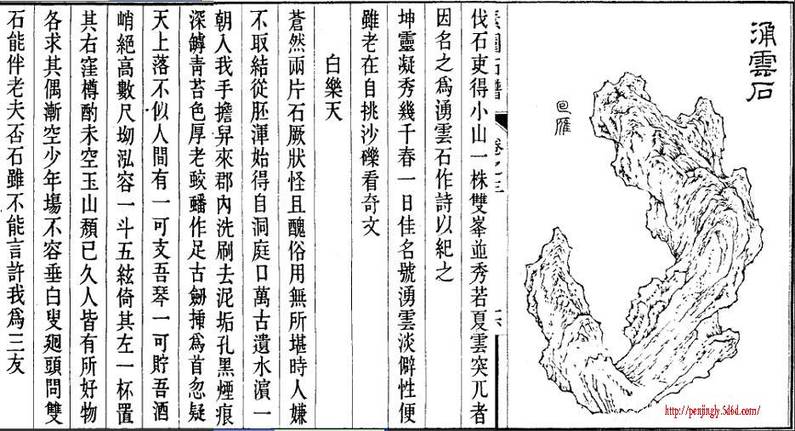 涌雲石
http://penjingly.5d6d.com/
伐石吏得小山一株雙峯並秀若夏雲突兀者
因名之爲湧雲石作詩以紀之
坤靈凝秀幾千春一日佳名號湧雲淡僻性便
雖老在自挑沙礫看奇文
白樂天
蒼然兩片石厥狀怪且醜俗用無所堪時人嫌
不取結從胚渾始得自洞庭口萬古遺水濵一
朝入我手擔舁來郡內洗刷去泥垢孔黑煙痕
深罅青苔色厚老蛟蟠作足古劒插爲首忽疑
天上落不似人間有一可支吾琴一可貯吾酒
峭絕高數尺坳泓容一斗五絃倚其左一杯置
其右窪樽酌未空玉山頽已久人皆有所好物
各求其偶漸空少年場不容垂白叟廻頭問雙
石能伴老夫否石雖不能言許我爲三友